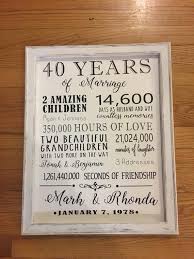 40 YEARS
of Marriage
2 AMAZING
CHILDREN
Ryan & Jeanana
14,600
DAYS AS HUSBAND AND WIFE
countless memories
350,000 HOURS OF LOVE
TWO BEAUTIFUL
GRANDCHILDREN
WITH TWO MORE ON THE WAY
Jonah & Benjamin
21,024,000
minutes of laughter
3 Addresses
1,261,440,000 SECONDS OF FRIENDSHIP
Mark & Rhonda
JANUARY 7, 1978